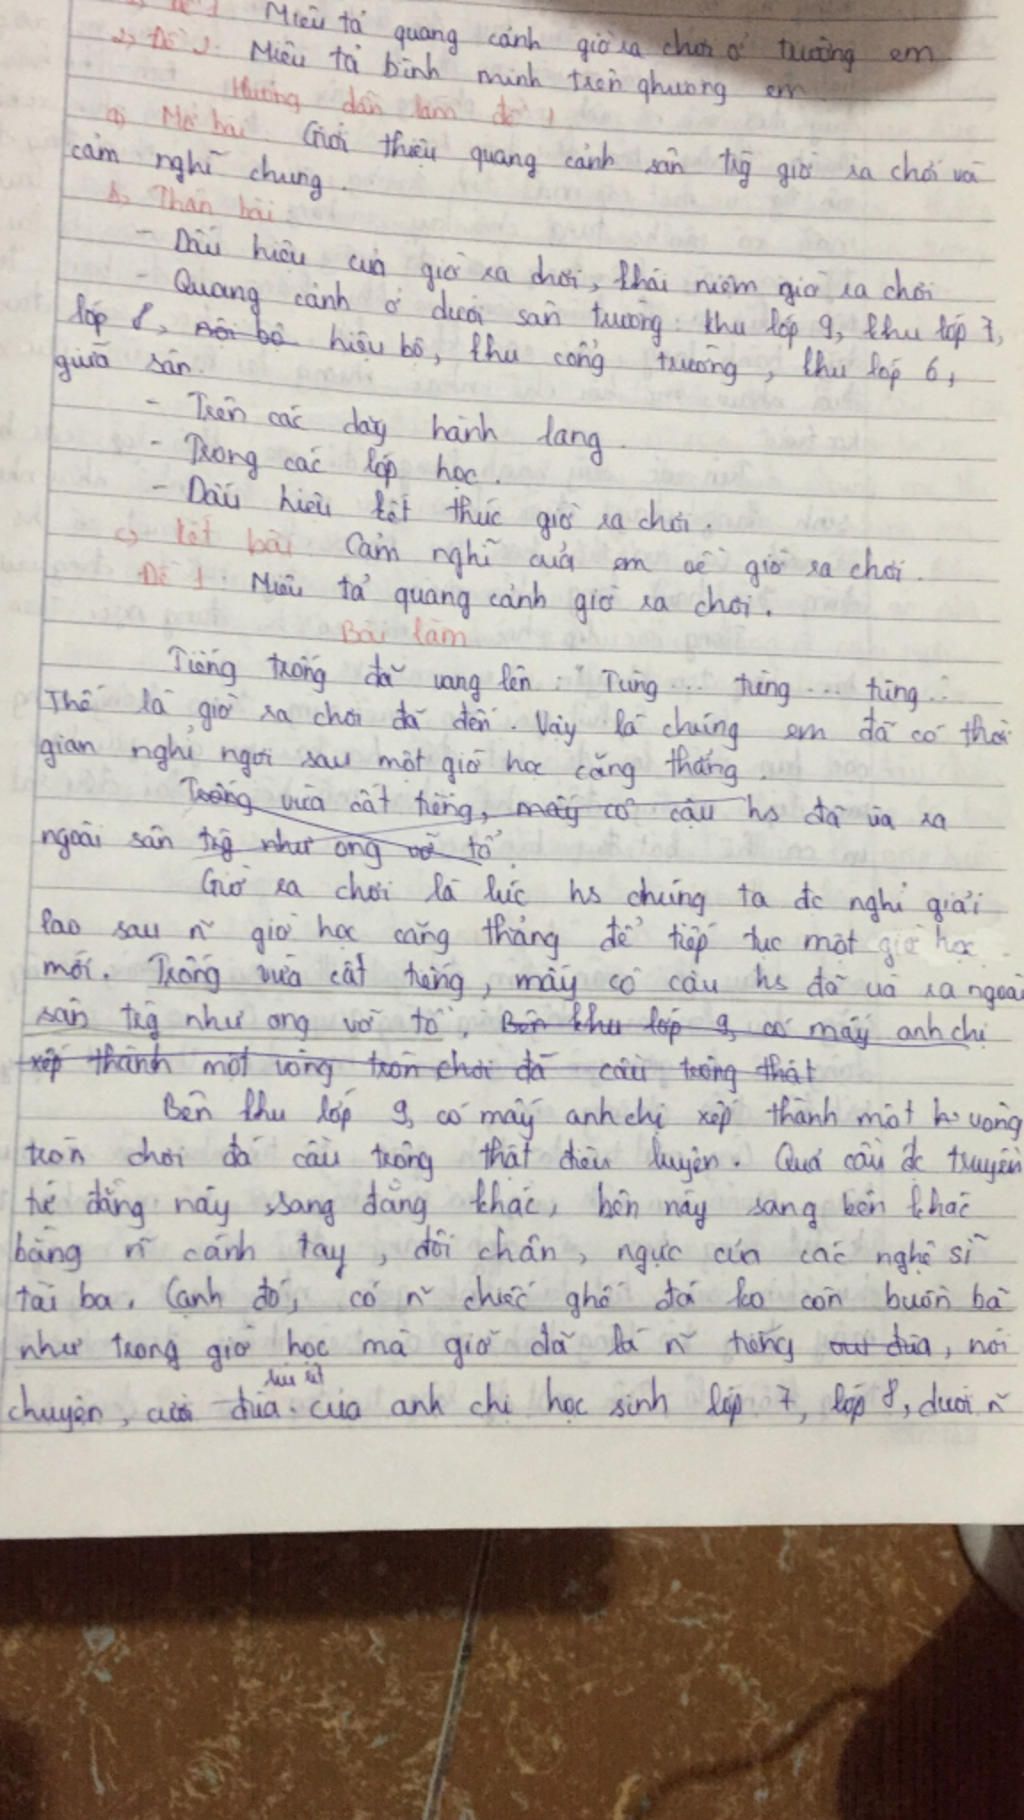 1, Đề 1: Miêu tả quang cảnh giờ ra chơi ở trường em
2, Đề 2: Miêu tả bình minh trên qhương em
Hướng dẫn làm đề 1
a) Mở bài: Giới thiệu quang cảnh sân trg giờ ra chơi và
cảm nghĩ chung.
b, Thân bài
- Dấu hiệu của giờ ra chơi, khái niệm giờ ra chơi
- Quang cảnh ở dưới sân trường: khu lớp 9, khu lớp 7,
lớp 8, nôi bộ hiệu bộ, khu cổng trường, khu lớp 6,
giữa sân.
- Trên các dãy hành lang.
- Trong các lớp học.
- Dấu hiệu kết thúc giờ ra chơi.
c) Kết bài: Cảm nghĩ của em về giờ ra chơi.
Đề 1: Miêu tả quang cảnh giờ ra chơi.
Bài làm
Tiếng trống đã vang lên: "Tùng... tùng... tùng..
Thế là giờ ra chơi đã đến. Vậy là chúng em đã có thời
gian nghỉ ngơi sau một giờ học căng thẳng.
Trống vừa cất tiếng, mấy cô cậu hs đã ùa ra
ngoài sân trg như ong vỡ tổ.
Giờ ra chơi là lúc hs chúng ta đc nghỉ giải
lao sau n~ giờ học căng thẳng để tiếp tục một giờ học
mới. Trống vừa cất tiếng, mấy cô cậu hs đã ùa ra ngoài
sân trg như ong vỡ tổ. Bên khu lớp 9, có mấy anh chị
xếp thành một vòng tròn chơi đá cầu trông thật
Bên khu lớp 9, có mấy anh chị xếp thành một vòng
tròn chơi đá cầu trông thật điêu luyện. Quả cầu đc truyền
từ đằng này sang đằng khác, bên này sang bên khác
bằng n~ cánh tay, đôi chân, ngực của các nghệ sĩ
tài ba. Cạnh đó, có n~ chiếc ghế đá ko còn buồn bã
như trong giờ học mà giờ đã là n~ tiếng đùa, nói
chuyện, cười đùa của anh chị học sinh lớp 7, lớp 8, dưới n~